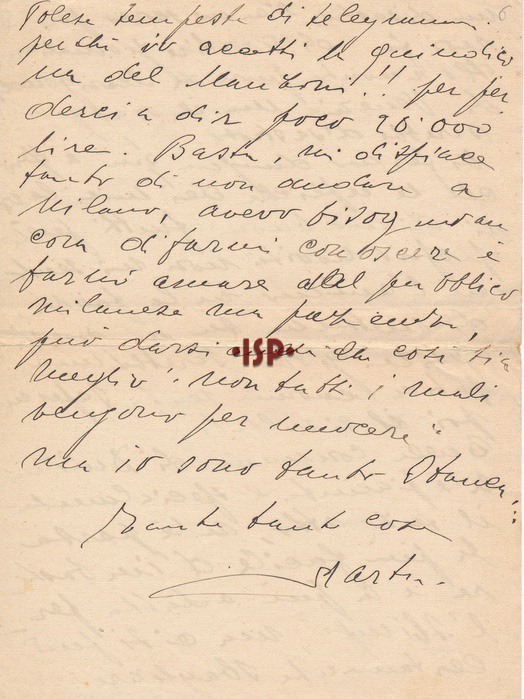 6
tempesta di telegrammi
perchè io accetti la quindici
na del Manzoni!! per per
derci a dir poco 20.000
lire. Basta, mi dispiace
tanto di non andare a
Milano, avevo bisogno an
cora di farmi conoscere e
farmi amare dal pubblico
milanese ma pazienza,
può darsi che così sia
meglio "non tutti i mali
vengono per nuocere"
ma io sono tanto stanca!!
Tante tante cose
Marta.
•ISP•